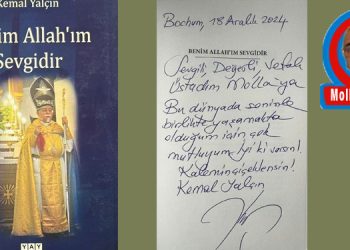 Kemal Yalçın
im Allah'ım
Sevgidir
YAY
Bochum, 18 Aralık 2024
BENİM ALLAH'IM SEVGİDİR
Sevgili, Değerli, Vefalı
Üstadım Molla'ya
Bu dünyada seninle
birlikte yaşamakta
olduğum için çok
mutluyum. İyi ki varsın!
Kalemin çiçeklensin!
Kemal Yalçın
Moll